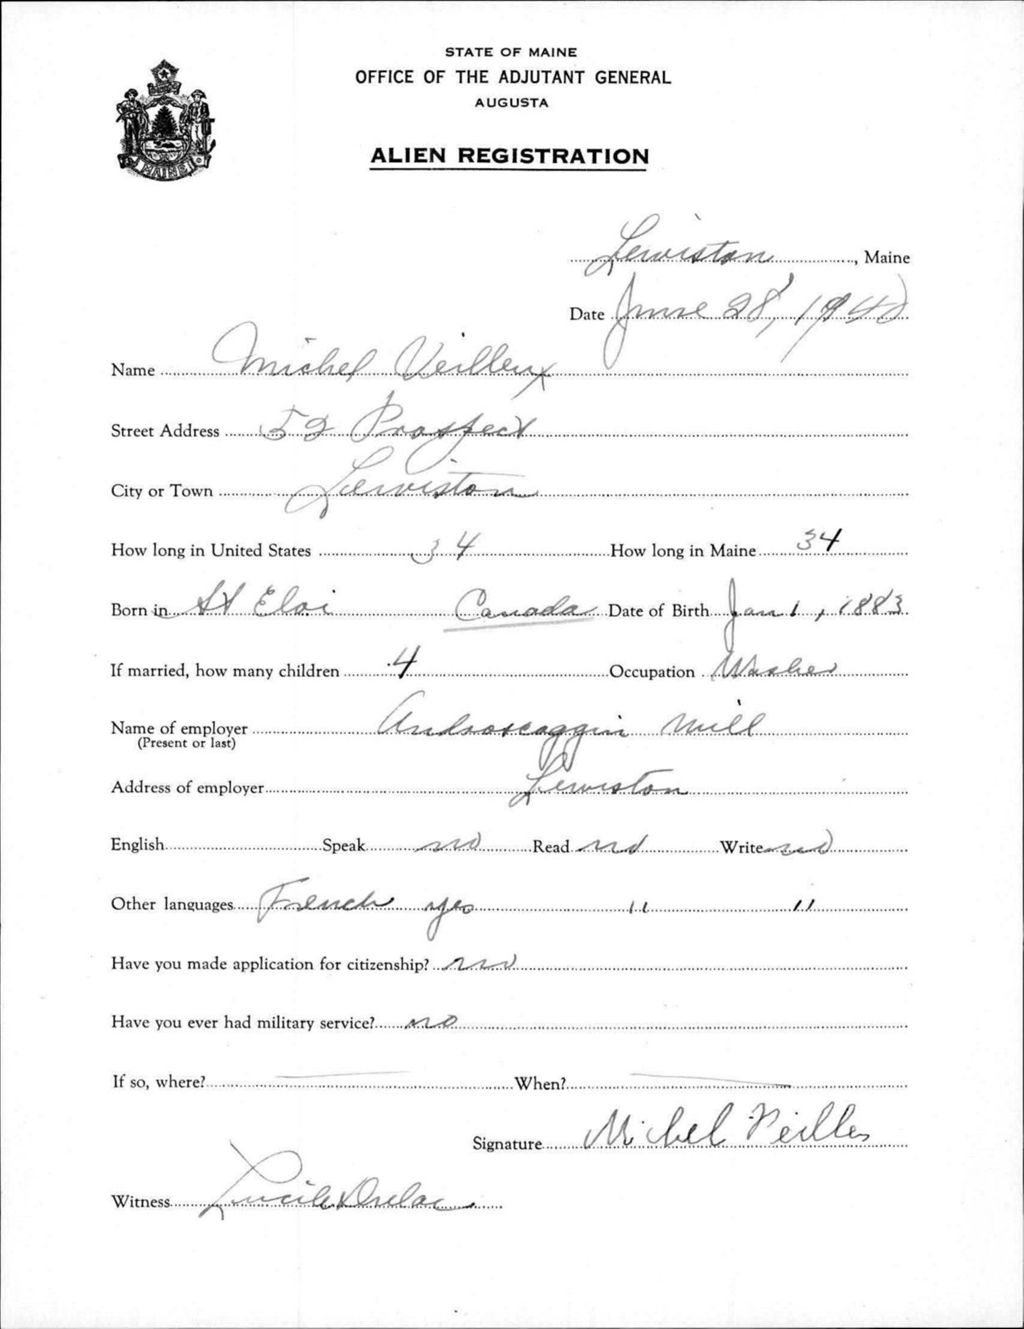 STATE OF MAINE
OFFICE OF THE ADJUTANT GENERAL
AUGUSTA
ALIEN REGISTRATION
MAINE
Lewiston, Maine
Date June 28, 1940
Name Michel Veilleux
Street Address 52 Prospect
City or Town Lewiston
How long in United States 34 How long in Maine 34
Born in St Eloi Canada Date of Birth Jan 1, 1883
If married, how many children 4 Occupation Washer
Name of employer Androscoggin Mill
(Present or last)
Address of employer Lewiston
English Speak no Read no Write no
Other languages French yes " "
Have you made application for citizenship? no
Have you ever had military service? no
If so, where? — When? —
Signature Michel Veilles
Witness Lucile